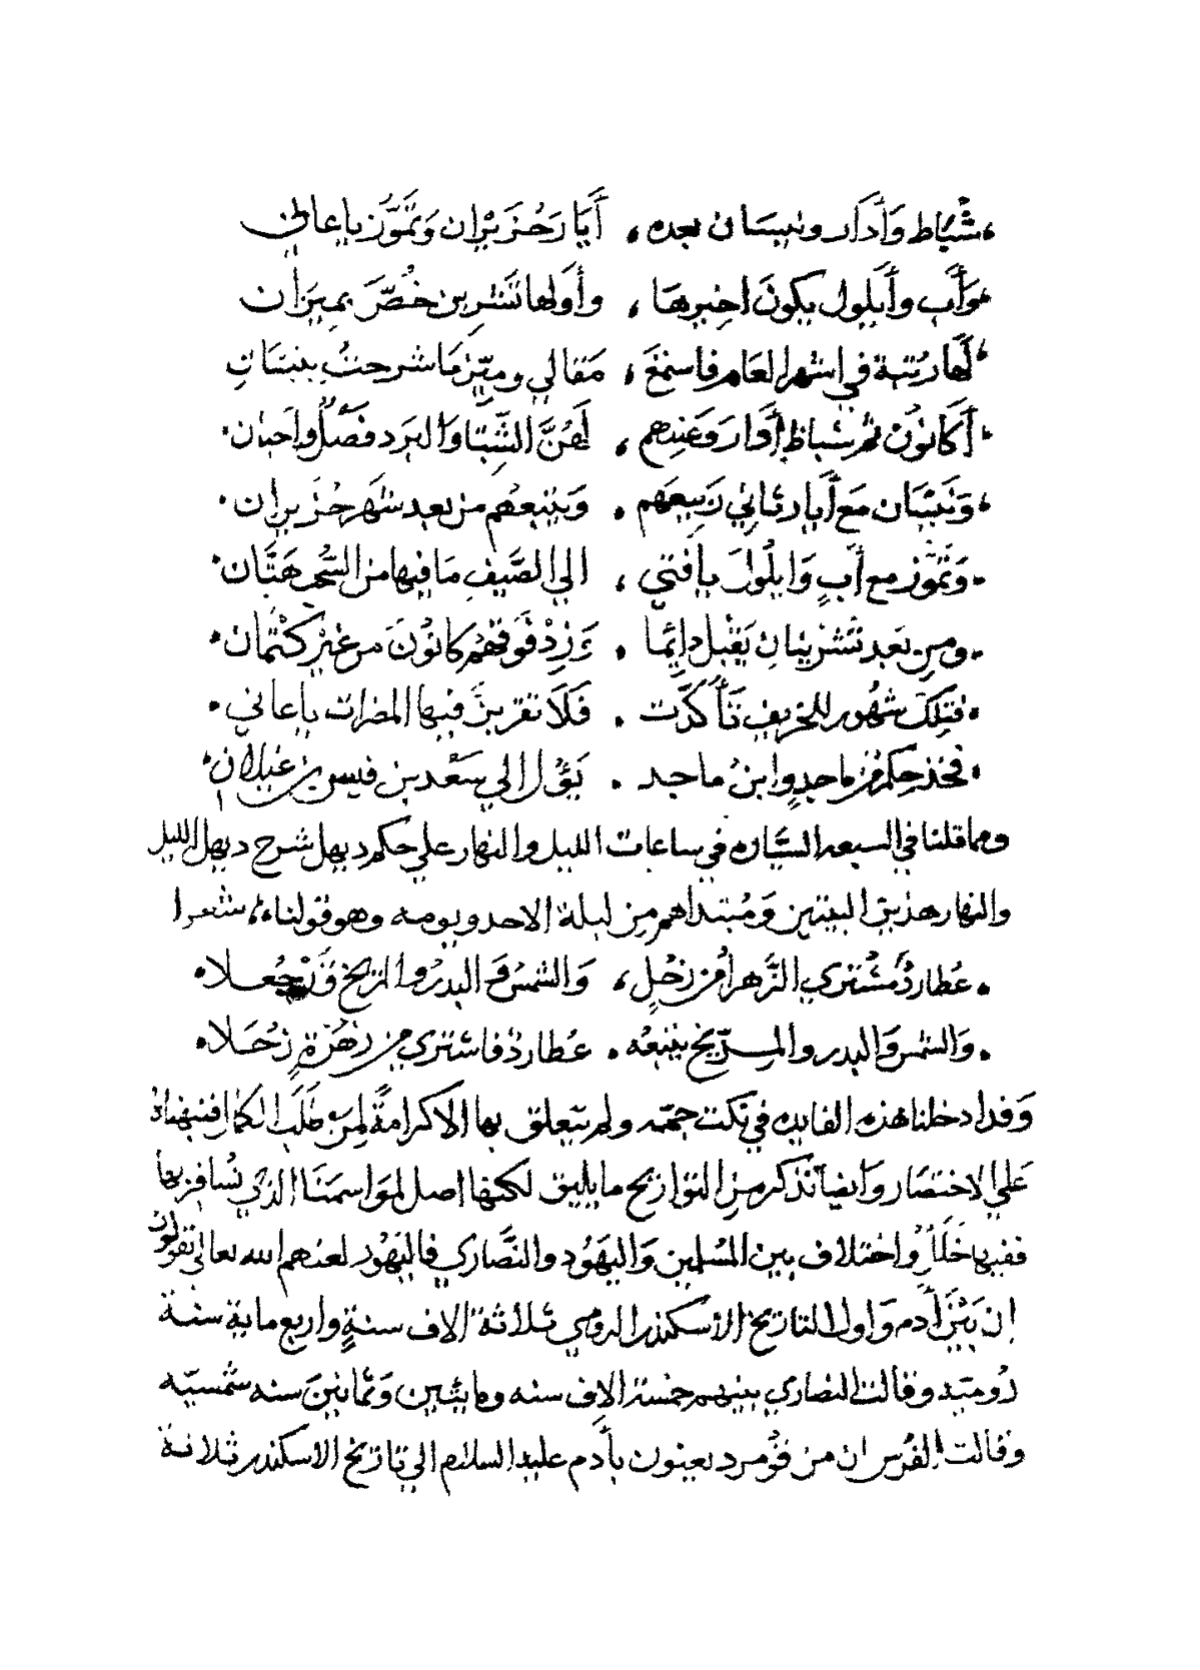 شُبَاط وَأَدَار ونيسان بعده، أَيَا رَحُزَيْران وَتَمُّوز يا عاني
وَأَب وأَيلول يكونَ اخيرها، وأَولها تَشرين خُصَّ بميزان
لَها رُتبة في اشهر العَام فاسمَعَ، مَقالي وميّز مَا شرحتُ بتبيَان
أَكَانوُنْ ثم شباط أَدَار وَعندهم، لَهُنَّ الشّتا وَالبَرَد فَصْلٌ واَحيان
وَنَيْسَان مَع أَيار ثاني رَبيعهم. وَيتبعهم من بعد شهر حُزَيران
وَتَمّوز مع أَبٍ وَايلُولَ يافتي، الي الصَّيف مَا فيها من السُّحب هَتَّان
ومن بَعد تَشْريَانِ يَقبل دائِمًا. وَزِدْ فَوقهُم كانوُنَ من غير كتْمان
فتلكَ شهُور للخريف تَأَكدَت. فَلَا تقربنَّ فيها المضرات ياعاني
فخذ حِكم من ماجدٍ وابنُ ماجد. يَؤُل الي سَعْد بن قيس بن غيلان
ومما قلنا في السبعه السيَّاره في ساعات الليل والنهار علي حكم ديهل شرح ديهل الليل
والنهار هذين البيتين وَمُبتداهم من ليلة الاحد ويومه وهو قولنا شعرا
عُطاردُ مُشْتري الزَّهرا مُن زحُلٍ، وَالشمسُ وَ البدرُ والمريخ قَدْ جُعلا
وَالشمس وَالبدر والمرّيخ يتبعُه. عُطاردُ فاشتري من زهَرَةٍ زُحَلا
وَقد ادخلنا هذه الفايده في نكت جمّه ولم يتعلق بها الا كرامةً لِمَن طَلَب الكمال فنبهناهُ
عَلي الاختصار وَايضاً نَذكر مِن التواريخ ما يليق لكنها اصل لموَاسمنَا الذي نُسافر بها
ففيها خَلَلٌ واختلاف بين المسلمين وَاليهَود والنَّصَاري فاليَهوُد لعنهم الله تعالى تقولون
إن بَيْنَ أَدم وَاول التاريخ الأسكندر الرومي ثلاثة الاف سنةٍ واربع ماية سنة
رُوميّه وقالت النصاري بينهم خمسة الافِ سنه ومايتَين وَثمانينَ سنه شمسيّه
وقالت الفُرس ان من يعنون بأدم عليه السلام الي تاريخ الاسكندر ثلاثة